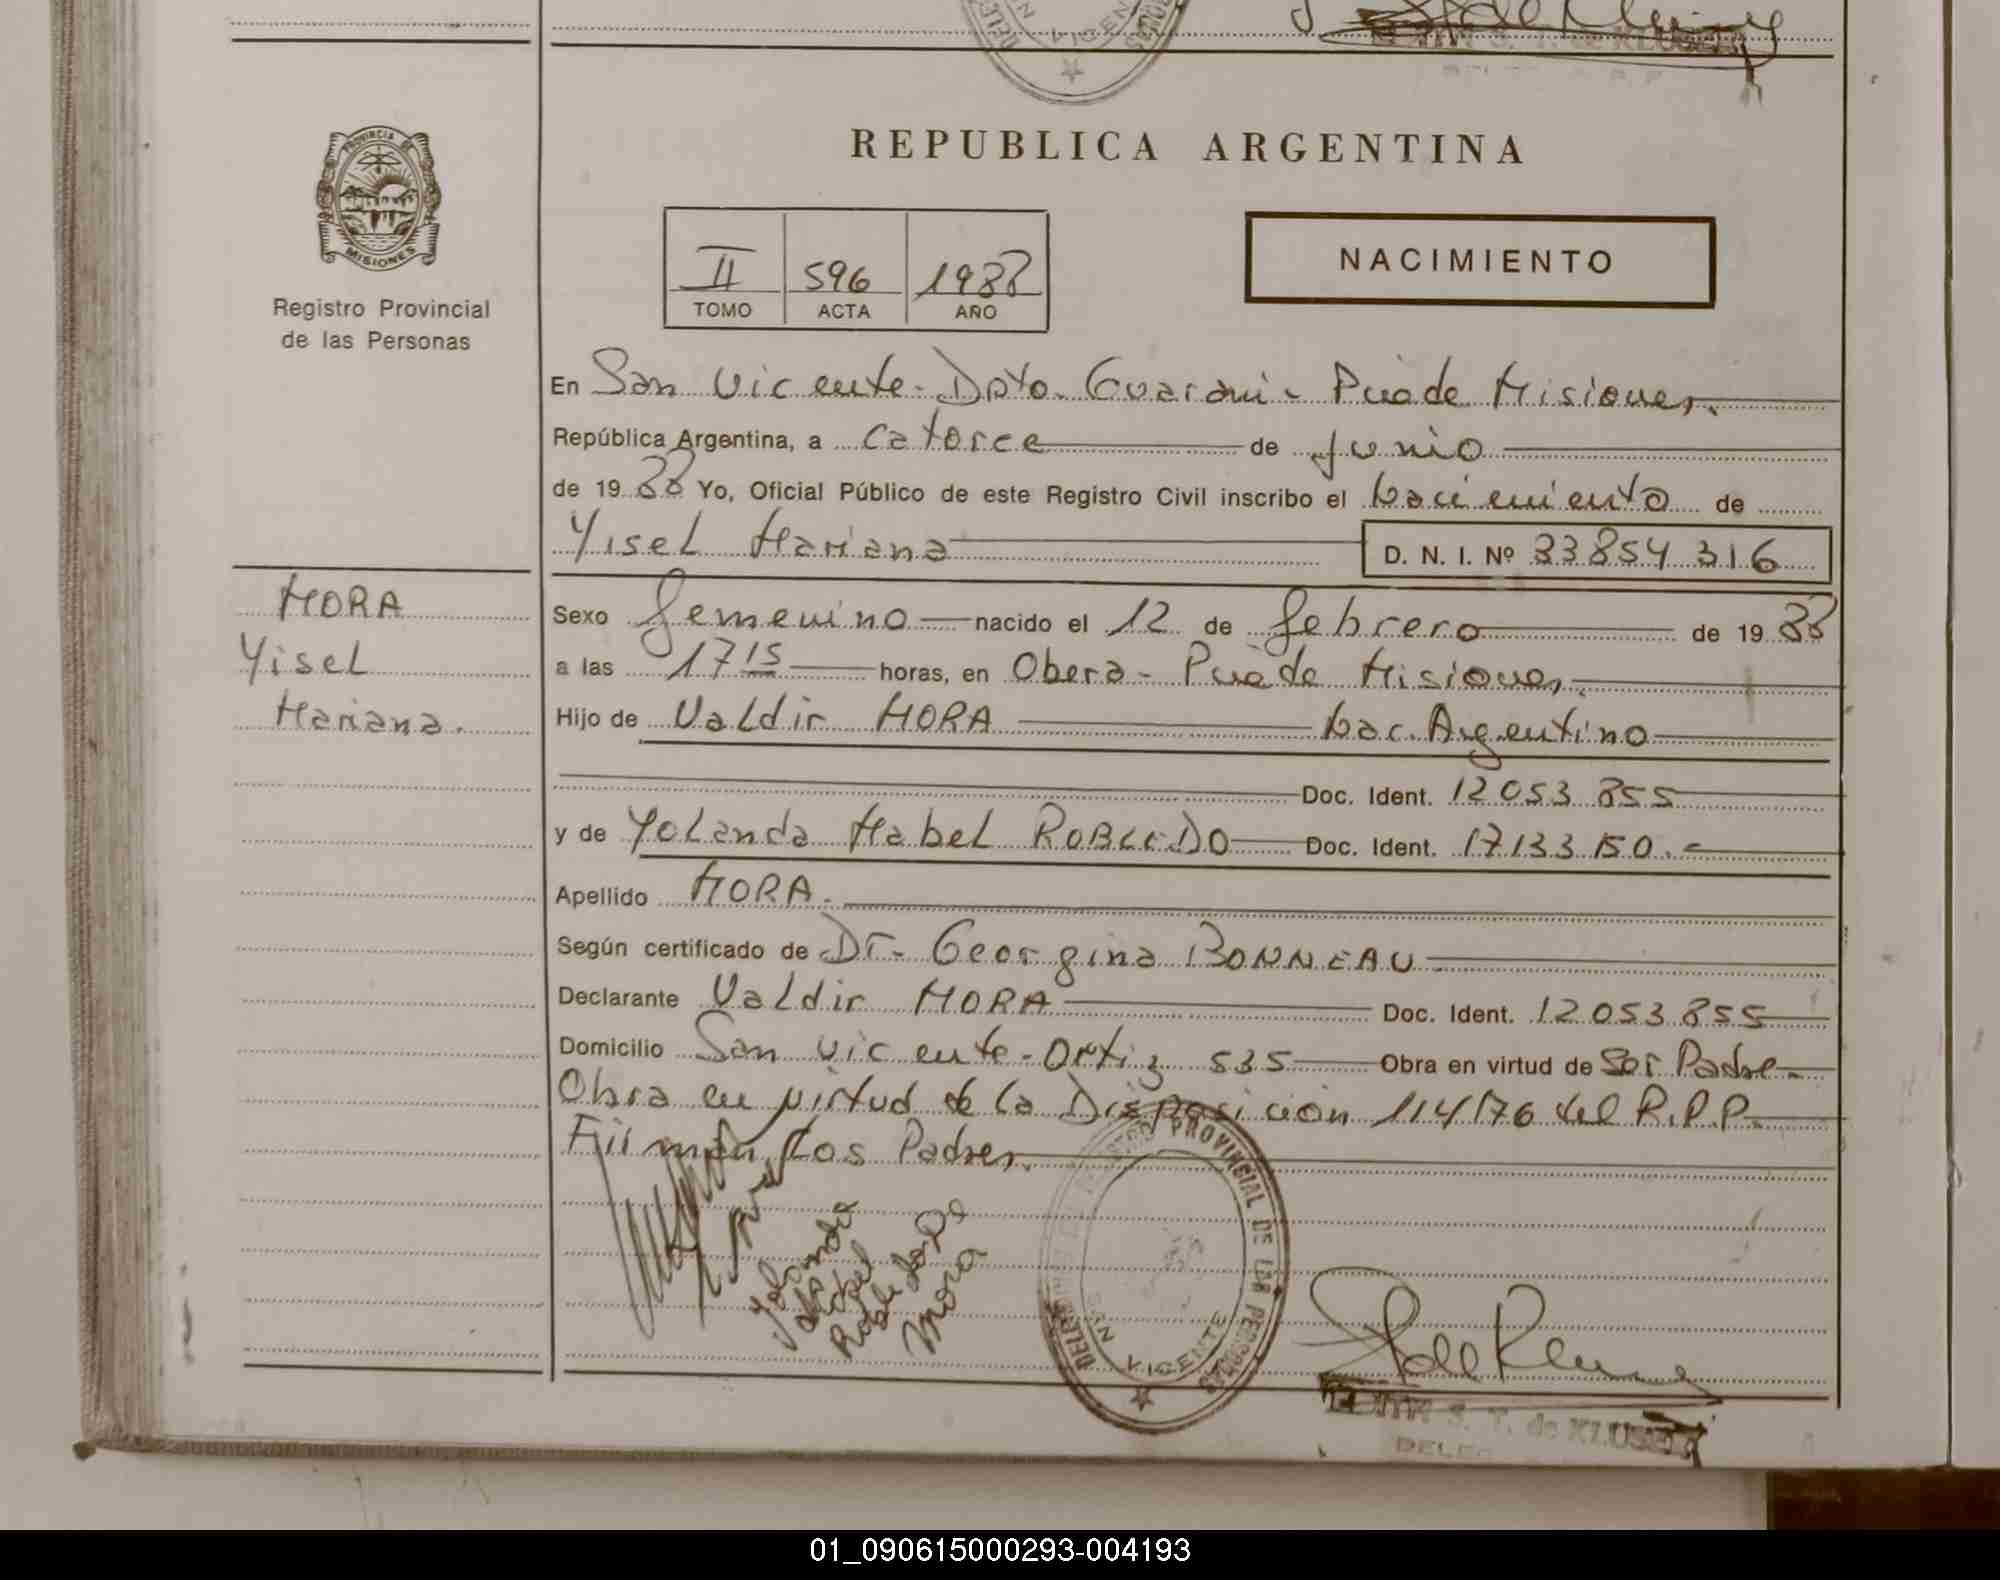 REPUBLICA ARGENTINA
PROVINCIA DE
MISIONES
Registro Provincial
de las Personas
II 596 1988
TOMO ACTA AÑO
NACIMIENTO
En San Vicente - Dpto. Guarani - Pcia de Misiones.
República Argentina, a catorce de Junio
de 1988 Yo, Oficial Público de este Registro Civil inscribo el nacimiento de
Yisel Mariana D. N. I. Nº 33854316
MORA
Yisel
Mariana.
Sexo femenino nacido el 12 de febrero de 1988
a las 17 15 horas, en Obera - Pcia de Misiones.
Hijo de Valdir MORA Nac. Argentino
Doc. Ident. 12053855
y de Yolanda Mabel ROBLEDO Doc. Ident. 17133150.-
Apellido MORA.
Según certificado de Dr. Georgina BONNEAU
Declarante Valdir MORA Doc. Ident. 12053855
Domicilio San Vicente - Ortiz 535 Obra en virtud de Ser Padre.
Obra en virtud de la Disposición 114/76 del R.P.P.
Firman Los Padres.
Yolanda
Mabel
Robledo De
Mora
REGISTRO PROVINCIAL DE LAS PERSONAS
SAN VICENTE
EDITH S. T. de KLUSE
01_090615000293-004193